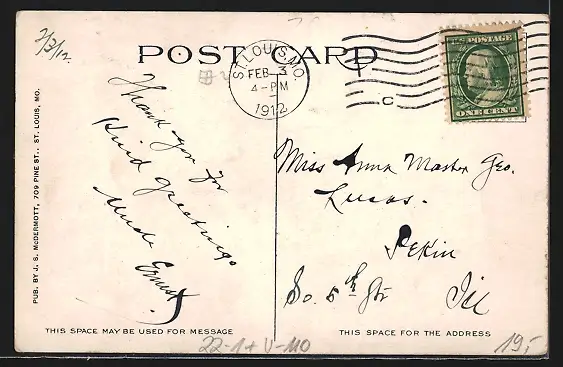 2/3/12.
POST CARD
ST. LOUIS, MO.
FEB 3
4-PM
1912
C
U.S. POSTAGE
ONE CENT
Thank you for
Kind greetings
Uncle Ernst
Miss Anna Master Geo.
Lucas.
Pekin
So. 5th Str Ill
PUB. BY J. S. McDERMOTT, 709 PINE ST., ST. LOUIS, MO.
THIS SPACE MAY BE USED FOR MESSAGE
THIS SPACE FOR THE ADDRESS
22-1+V-MO
19,-